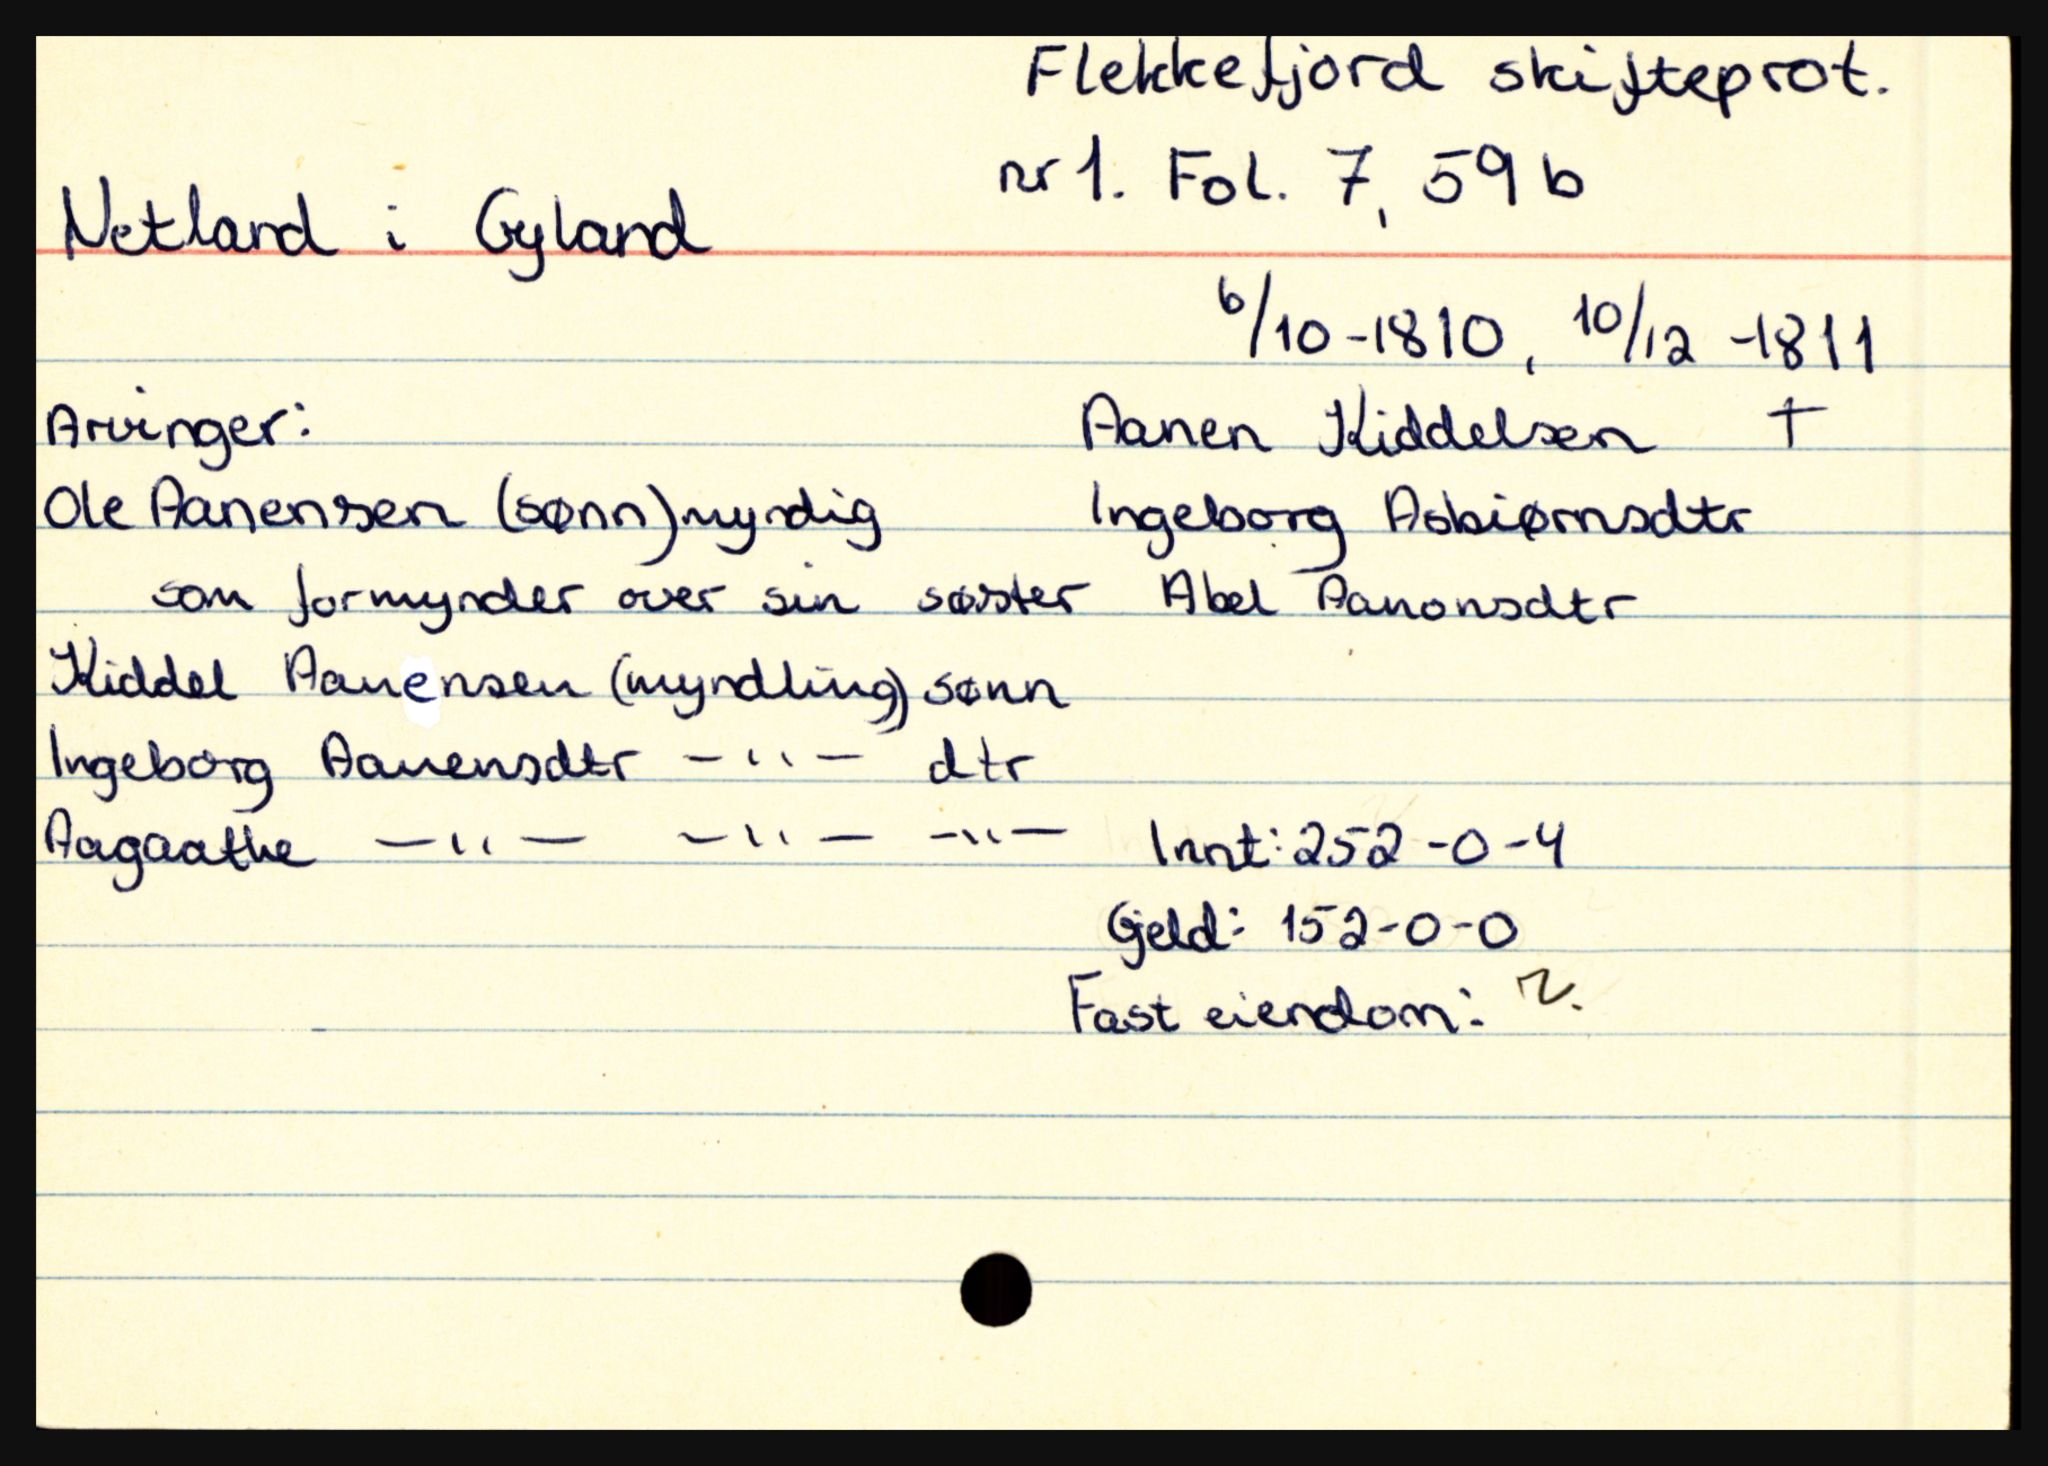 Flekkefjord skifteprot.
nr 1. Fol. 7, 59 b
Netland i Gyland
6/10-1810, 10/12-1811
Arvinger: Aanen Kiddelsen †
Ole Aanensen (sønn) myndig Ingeborg Asbiørnsdtr
som formynder over sin søster Abel Aanonsdtr
Kiddel Aanensen (myndling) sønn
Ingeborg Aanensdtr —"— dtr
Aagaathe —"— —"— —"— Innt: 252-0-4
Gjeld: 152-0-0
Fast eiendom: